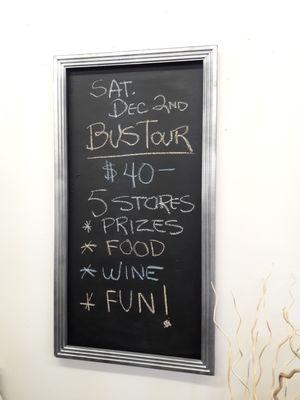 SAT.
DEC 2ND
BUSTOUR
$40-
5 STORES
* PRIZES
* FOOD
* WINE
* FUN!